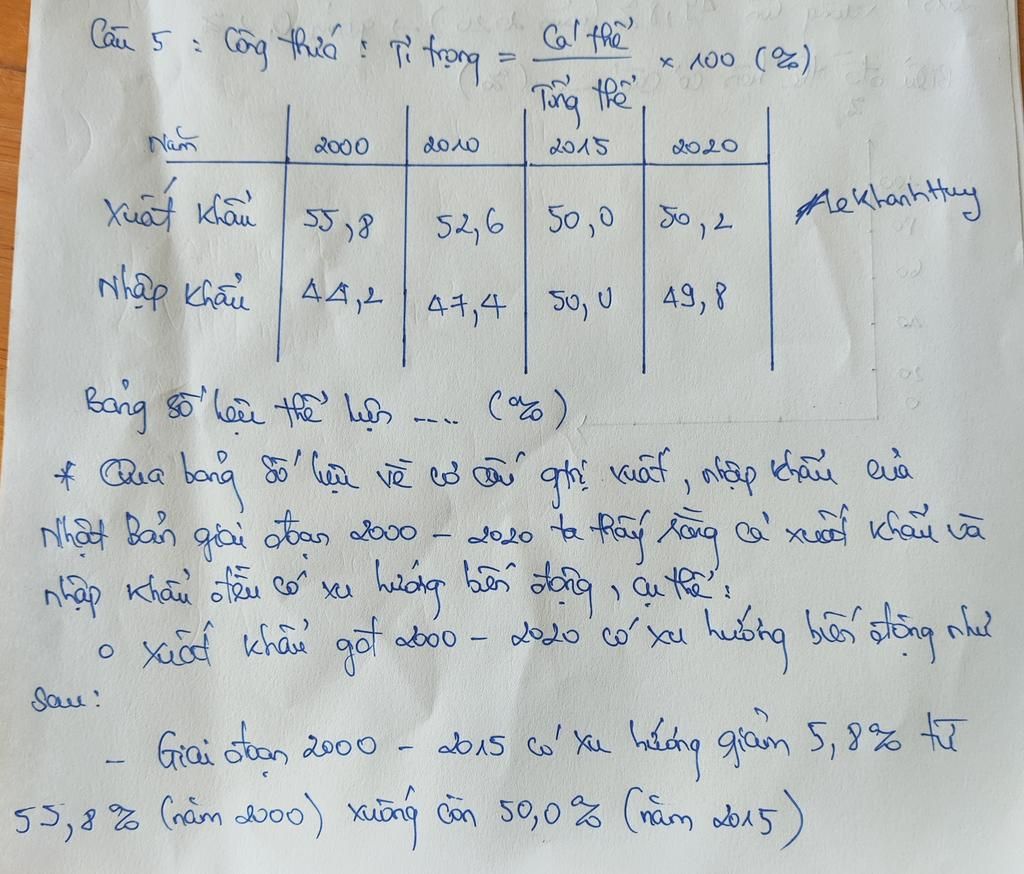 Câu 5 : Công thức : Tỉ trọng = Cá thể / Tổng thể × 100 (%)
Năm 2000 2010 2015 2020
Xuất khẩu 55,8 52,6 50,0 50,2
Nhập khẩu 44,2 47,4 50,0 49,8
LeKhanhHuy
Bảng số liệu thể hiện .... (%)
* Qua bảng số liệu về cơ cấu gtrị xuất, nhập khẩu của
Nhật Bản giai đoạn 2000 - 2020 ta thấy rằng cả xuất khẩu và
nhập khẩu đều có xu hướng biến động, cụ thể :
o xuất khẩu gđ 2000 - 2020 có xu hướng biến động như
sau:
- Giai đoạn 2000 - 2015 có xu hướng giảm 5,8% từ
55,8% (năm 2000) xuống còn 50,0% (năm 2015)